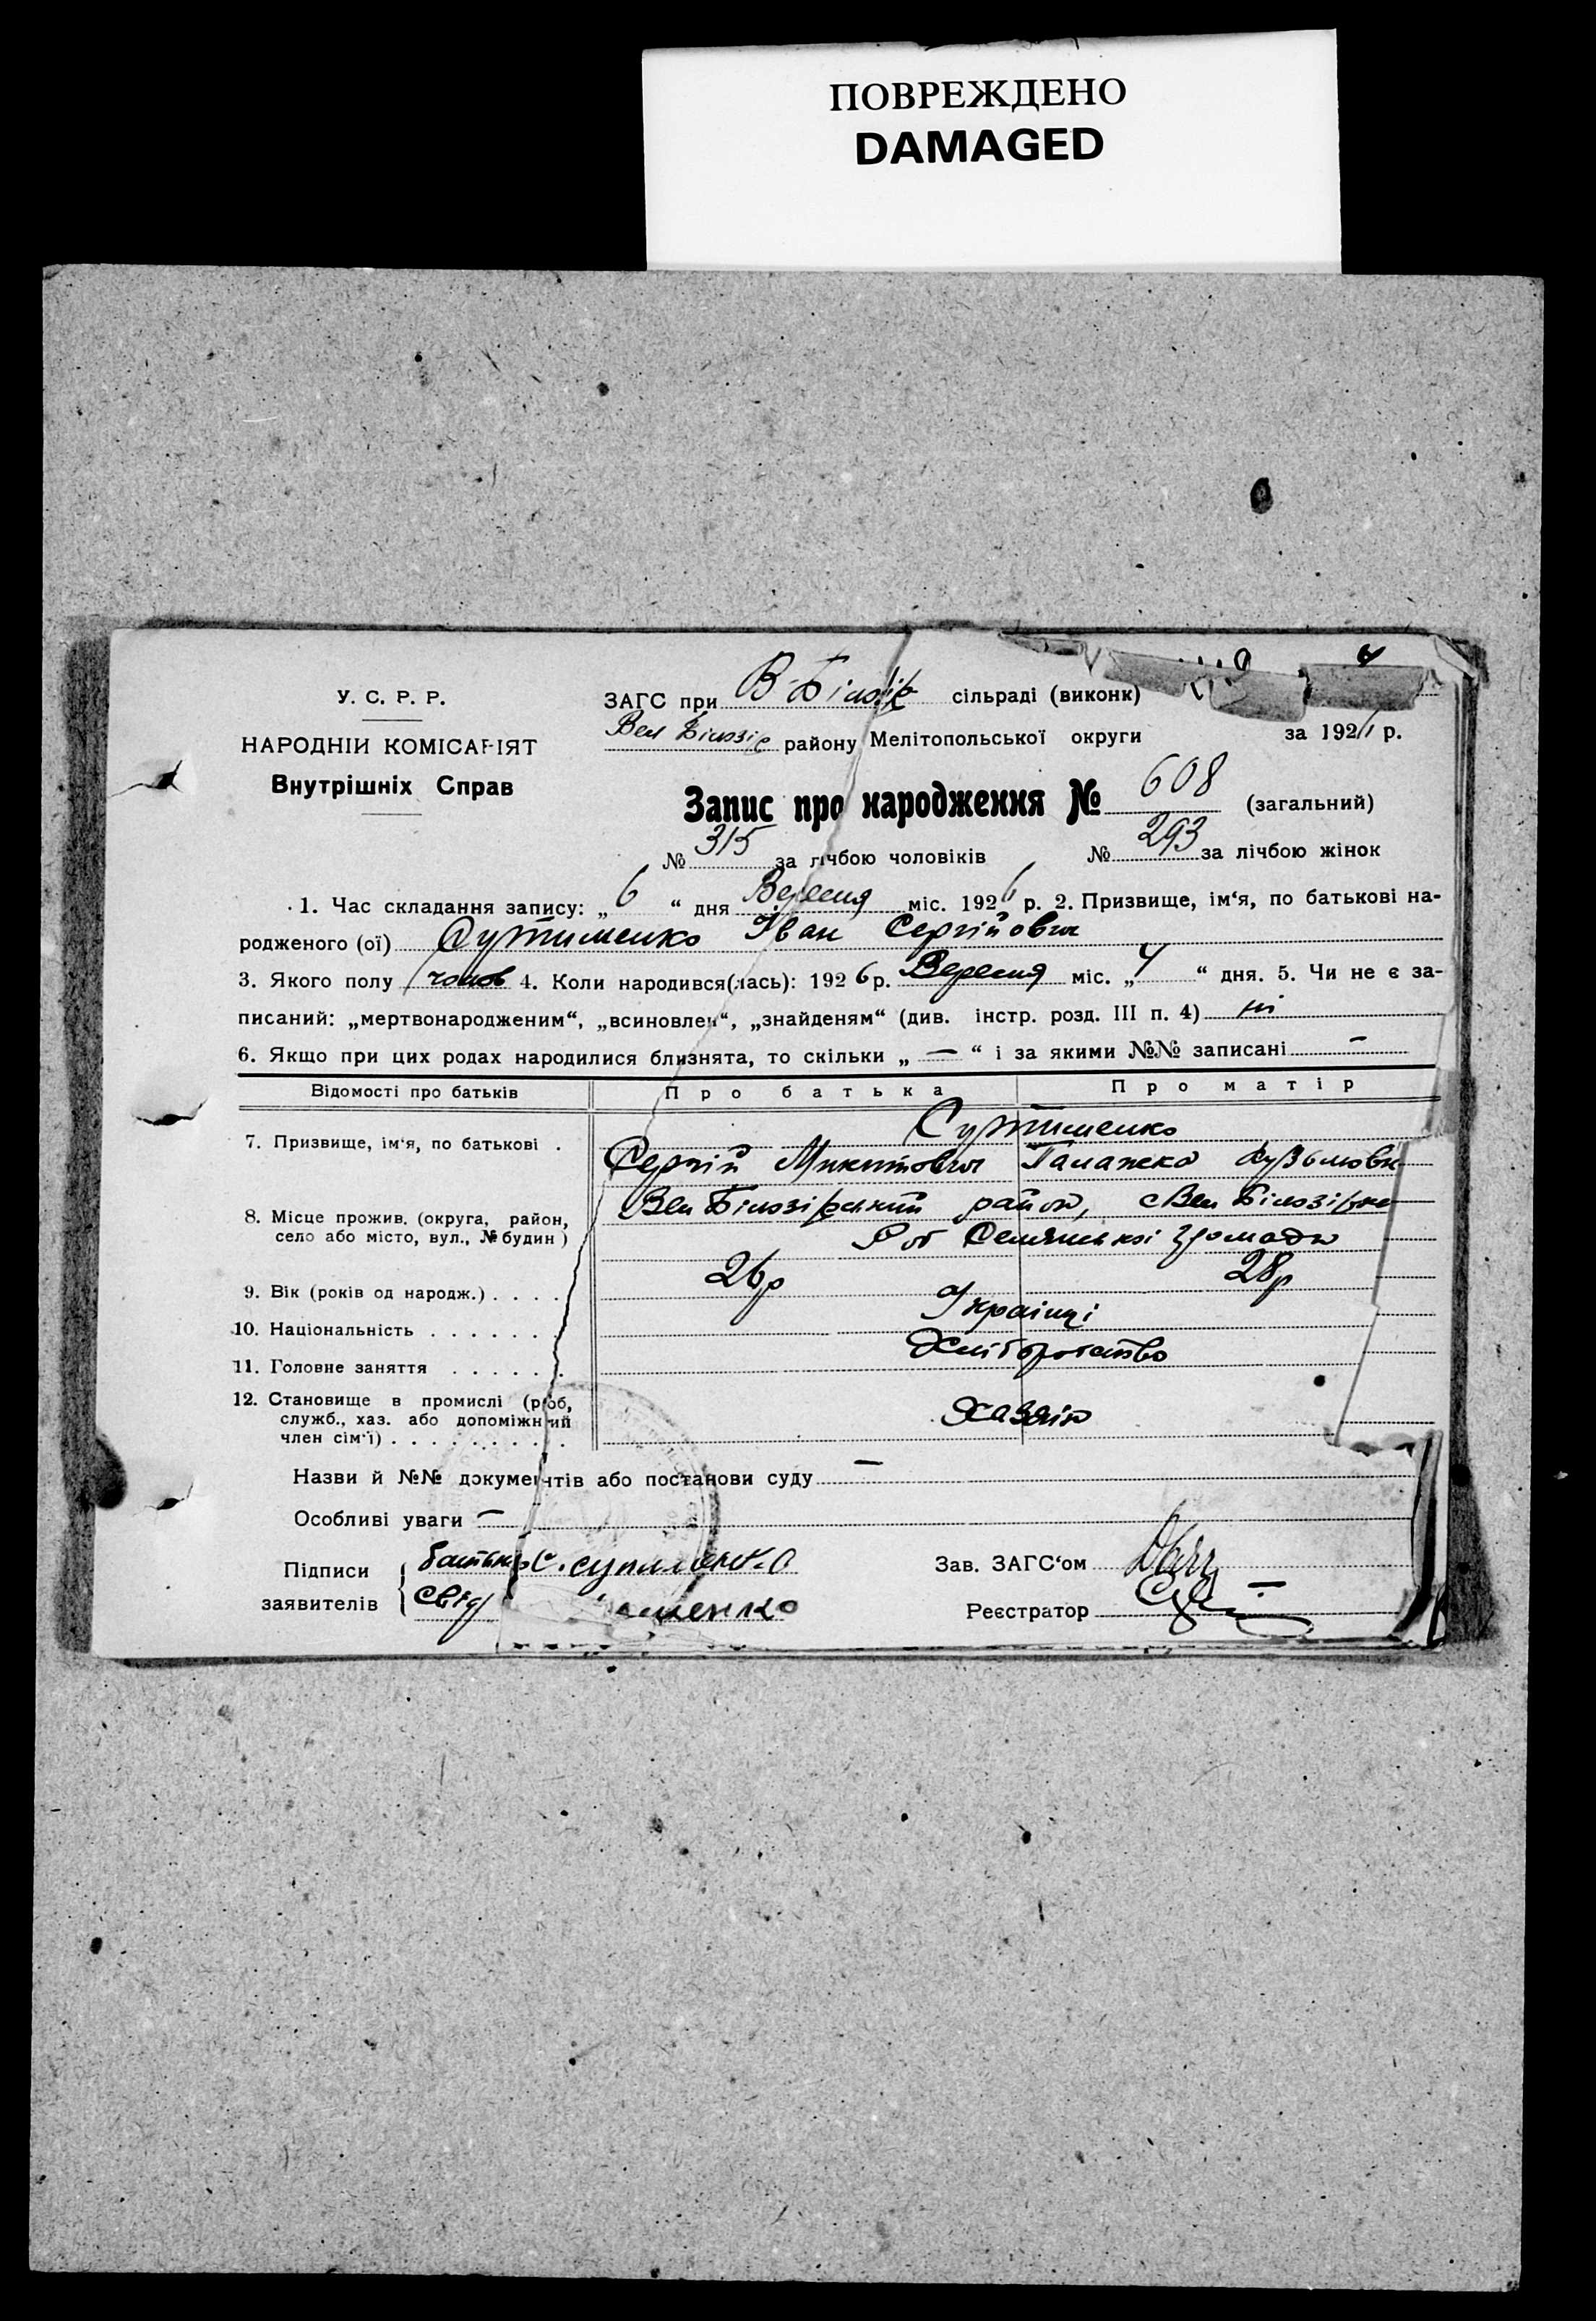 ПОВРЕЖДЕНО
DAMAGED
У. С. Р. Р.
НАРОДНІЙ КОМІСАРІЯТ
Внутрішніх Справ
ЗАГС при В-Білозір сільраді (виконк)
Вел Білозіс району Мелітопольської округи за 1926 р.
Запис про народження № 608 (загальний)
№ 315 за лічбою чоловіків № 293 за лічбою жінок
1. Час складання запису: „ 6 “ дня Вересня міс. 1926 р. 2. Призвище, ім‘я, по батькові на-
родженого (ої) Супименко Іван Сергійович
3. Якого полу чолов 4. Коли народився(лась): 1926 р. Вересня міс. „ 4 “ дня. 5. Чи не є за-
писаний: „мертвонародженим“, „всиновлен“, „знайденям“ (див. інстр. розд. III п. 4) ні
6. Якщо при цих родах народилися близнята, то скільки „ — “ і за якими №№ записані —
Відомості про батьків Про батька Про матір
7. Призвище, ім‘я, по батькові . Супименко
Сергій Микитович Палажка Кузьмовн
8. Місце прожив. (округа, район, село або місто, вул., № будин) Вел Білозірський район, с Вел Білозірка
громади
9. Вік (років од народж.) . . . . 26р 28р
10. Національність . . . . . . . Українці
11. Головне заняття . . . . . . Хліборобство
12. Становище в промислі (роб, служб., хаз. або допоміжний член сім‘ї) . . . . . . . . . . Хазяїн
Назви й №№ документів або постанови суду —
Особливі уваги —
Підписи заявителів { батько С. супименко
свід менко
Зав. ЗАГС‘ом
Реєстратор